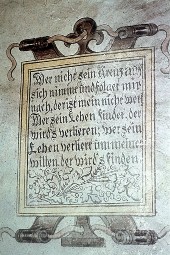 Wer nicht sein Kreuz auf
sich nimmt und folget mir
nach, der ist mein nicht wert
Wer sein Leben findet, der
wird's verlieren; wer sein
Leben verliert um meinet
willen, der wird's finden